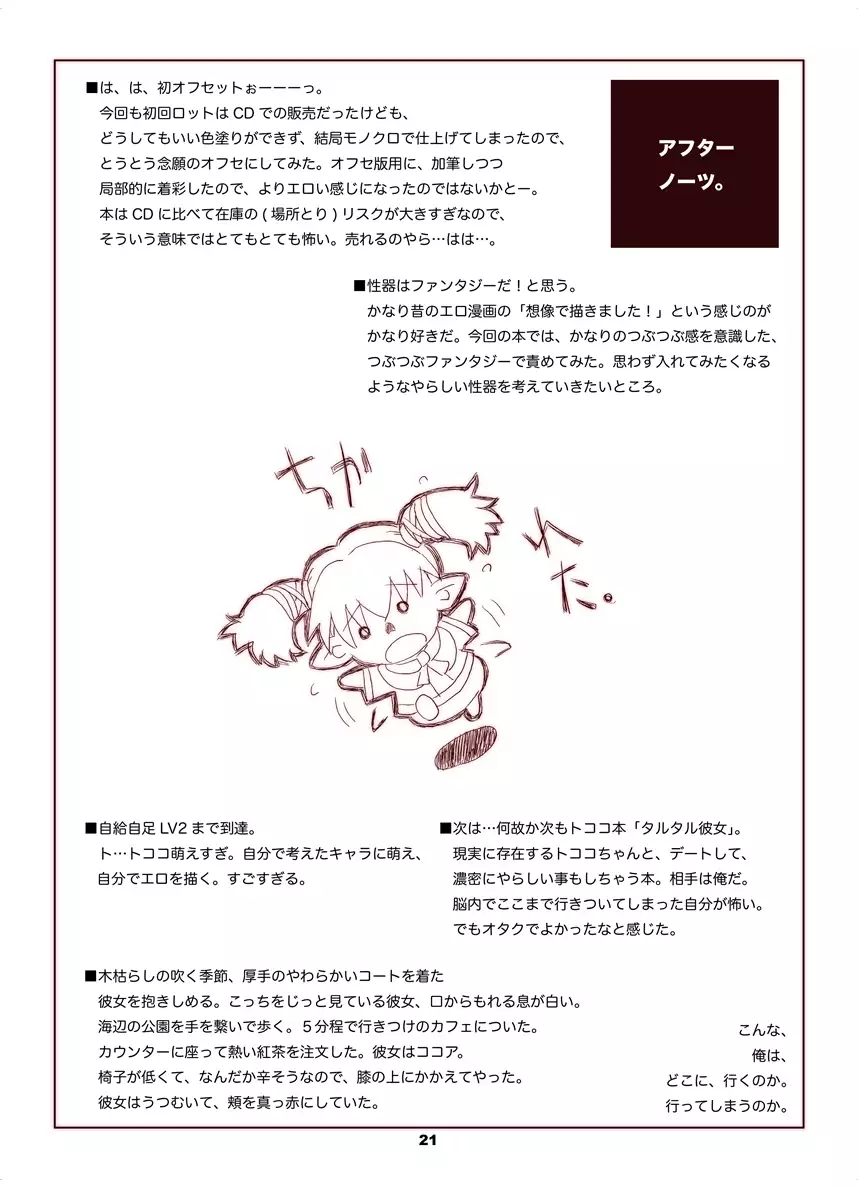 アフター
ノーツ。
■は、は、初オフセットぉーーーっ。
今回も初回ロットは CD での販売だったけども、
どうしてもいい色塗りができず、結局モノクロで仕上げてしまったので、
とうとう念願のオフセにしてみた。オフセ版用に、加筆しつつ
局部的に着彩したので、よりエロい感じになったのではないかとー。
本は CD に比べて在庫の ( 場所とり ) リスクが大きすぎなので、
そういう意味ではとてもとても怖い。売れるのやら…はは…。
■性器はファンタジーだ！と思う。
かなり昔のエロ漫画の「想像で描きました！」という感じのが
かなり好きだ。今回の本では、かなりのつぶつぶ感を意識した、
つぶつぶファンタジーで責めてみた。思わず入れてみたくなる
ようなやらしい性器を考えていきたいところ。
ちか
れ
た。
■自給自足 LV2 まで到達。
ト…トココ萌えすぎ。自分で考えたキャラに萌え、
自分でエロを描く。すごすぎる。
■次は…何故か次もトココ本「タルタル彼女」。
現実に存在するトココちゃんと、デートして、
濃密にやらしい事もしちゃう本。相手は俺だ。
脳内でここまで行きついてしまった自分が怖い。
でもオタクでよかったなと感じた。
■木枯らしの吹く季節、厚手のやわらかいコートを着た
彼女を抱きしめる。こっちをじっと見ている彼女、口からもれる息が白い。
海辺の公園を手を繋いで歩く。５分程で行きつけのカフェについた。
カウンターに座って熱い紅茶を注文した。彼女はココア。
椅子が低くて、なんだか辛そうなので、膝の上にかかえてやった。
彼女はうつむいて、頬を真っ赤にしていた。
こんな、
俺は、
どこに、行くのか。
行ってしまうのか。
21